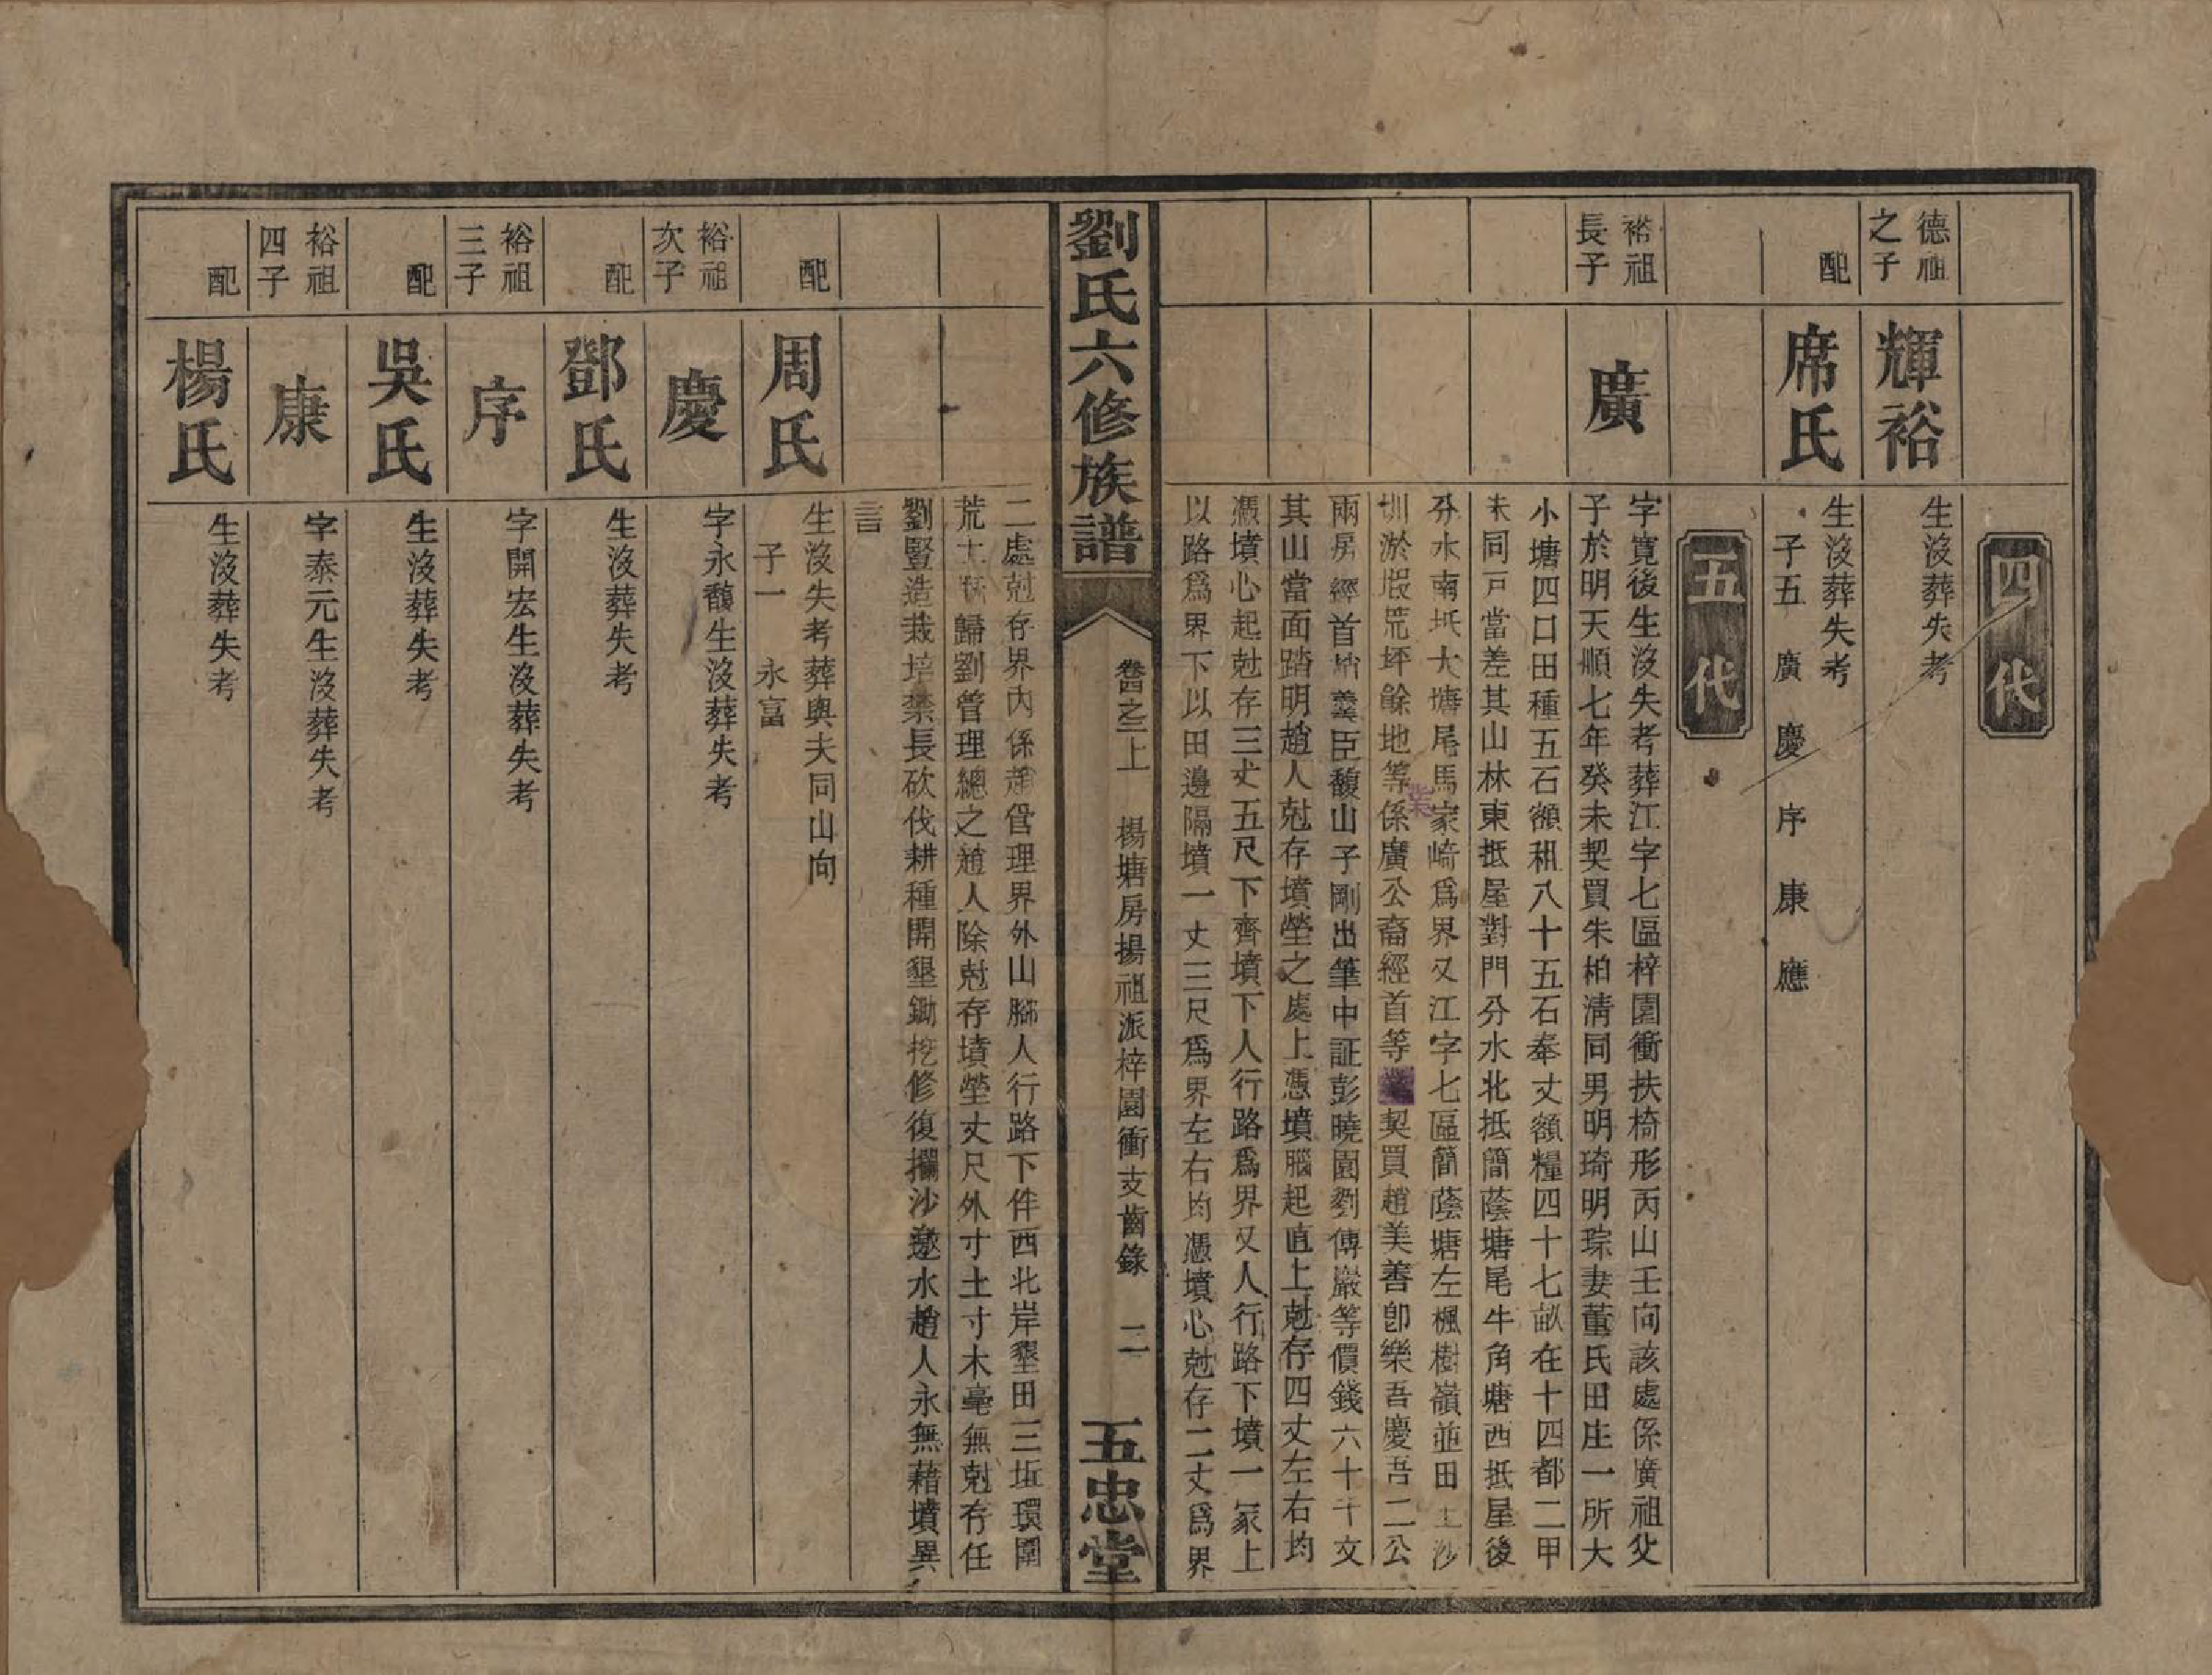 四代
德祖之子
輝裕
生沒葬失考
配
席氏
生沒葬失考
子五 廣 慶 序 康 應
五代
裕祖長子
廣
字寛後生沒失考葬江字七區梓園衝扶椅形丙山壬向該處係廣祖父
子於明天順七年癸未契買朱柏清同男明琦明琮妻董氏田庄一所大
小塘四口田種五石額租八十五石奉丈額糧四十七畝在十四都二甲
朱同戸當差其山林東抵屋對門分水北抵簡蔭塘尾牛角塘西抵屋後
分水南抵大塘尾馬家崎爲界又江字七區簡蔭塘左楓樹嶺並田土沙
圳淤塅荒坪餘地等係廣公裔經首等業契買趙美善卽樂吾慶吾二公
兩房經首羹臣馥山子剛出筆中証彭曉園劉傅巖等價錢六十千文
其山當面踏明趙人尅存墳塋之處上憑墳腦起直上尅存四丈左右均
憑墳心起尅存三丈五尺下齊墳下人行路爲界又人行路下墳一冢上
以路爲界下以田邊隔墳一丈三尺爲界左右均憑墳心尅存二丈爲界
劉氏六修族譜
卷之二上 楊塘房揚祖派梓園衝支齒錄 二
五忠堂
二處尅存界內係趙管理界外山腳人行路下件西北岸墾田三坵環圍
荒土槪歸劉管理總之趙人除尅存墳塋丈尺外寸土寸木毫無尅存任
劉豎造栽培禁長砍伐耕種開墾鋤挖修復攔沙邀水趙人永無藉墳異
言
配
周氏
生沒失考葬與夫同山向
子一 永富
裕祖次子
慶
字永馥生沒葬失考
配
鄧氏
生沒葬失考
裕祖三子
序
字開宏生沒葬失考
配
吳氏
生沒葬失考
裕祖四子
康
字泰元生沒葬失考
配
楊氏
生沒葬失考